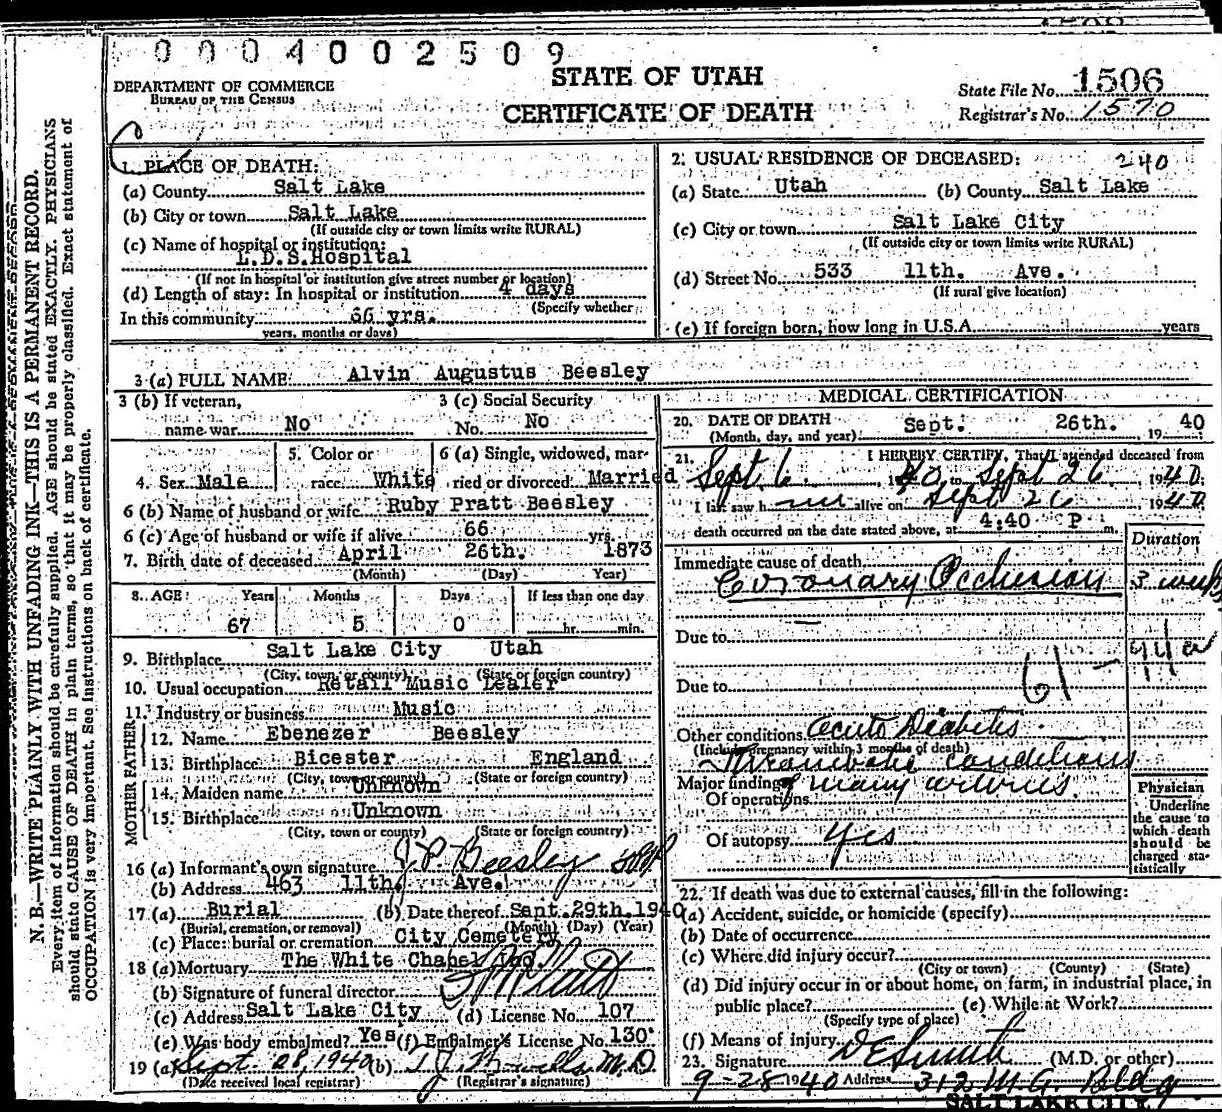 0004002509
DEPARTMENT OF COMMERCE
BUREAU OF THE CENSUS
STATE OF UTAH
CERTIFICATE OF DEATH
State File No. 1506
Registrar's No. 1570
N. B.—WRITE PLAINLY WITH UNFADING INK—THIS IS A PERMANENT RECORD.
Every item of information should be carefully supplied. AGE should be stated EXACTLY. PHYSICIANS
should state CAUSE OF DEATH in plain terms, so that it may be properly classified. Exact statement of
OCCUPATION is very important. See instructions on back of certificate.
1. PLACE OF DEATH:
(a) County Salt Lake
(b) City or town Salt Lake
(If outside city or town limits write RURAL)
(c) Name of hospital or institution:
L.D.S.Hospital
(If not in hospital or institution give street number or location)
(d) Length of stay: In hospital or institution 4 days
(Specify whether
In this community 66 yrs.
years, months or days)
2. USUAL RESIDENCE OF DECEASED: 240
(a) State Utah (b) County Salt Lake
(c) City or town Salt Lake City
(If outside city or town limits write RURAL)
(d) Street No. 533 11th. Ave.
(If rural give location)
(e) If foreign born, how long in U.S.A. years
3 (a) FULL NAME: Alvin Augustus Beesley
3 (b) If veteran,
name war No
3 (c) Social Security
No. No
4. Sex Male
5. Color or
race White
6 (a) Single, widowed, mar-
ried or divorced: Married
6 (b) Name of husband or wife Ruby Pratt Beesley
6 (c) Age of husband or wife if alive 66 yrs.
7. Birth date of deceased April 26th. 1873
(Month) (Day) Year)
8. AGE: Years Months Days If less than one day
67 5 0 hr. min.
9. Birthplace Salt Lake City Utah
(City, town, or county) (State or foreign country)
10. Usual occupation Retail Music Dealer
11. Industry or business Music
FATHER
12. Name Ebenezer Beesley
13. Birthplace Bicester England
(City, town or county) (State or foreign country)
MOTHER
14. Maiden name Unknown
15. Birthplace Unknown
(City, town or county) (State or foreign country)
16 (a) Informant's own signature J.P. Beesley
(b) Address 463 11th. Ave.
17 (a) Burial (b) Date thereof Sept. 29th. 1940
(Burial, cremation, or removal) (Month) (Day) (Year)
(c) Place: burial or cremation City Cemetery
18 (a) Mortuary The White Chapel Inc.
(b) Signature of funeral director
(c) Address Salt Lake City (d) License No. 107
(e) Was body embalmed? Yes (f) Embalmer's License No. 130
19 (a) Sept. 28, 1940 (b) M.D.
(Date received local registrar) (Registrar's signature)
MEDICAL CERTIFICATION
20. DATE OF DEATH
(Month, day, and year) Sept. 26th. 1940
21. I HEREBY CERTIFY, That I attended deceased from
Sept 6, 1940, to Sept 26, 1940
I last saw him alive on Sept 26 1940
death occurred on the date stated above, at 4:40 P m.
Duration
Immediate cause of death
Coronary Occlusion 3 weeks
Due to
61 -
Due to
Other conditions Acute Diabetes.
(Include pregnancy within 3 months of death)
Thrombotic conditions
of many arteries.
Major findings
Of operations
Of autopsy yes
Physician
Underline
the cause to
which death
should be
charged sta-
tistically
22. If death was due to external causes, fill in the following:
(a) Accident, suicide, or homicide (specify)
(b) Date of occurrence
(c) Where did injury occur?
(City or town) (County) (State)
(d) Did injury occur in or about home, on farm, in industrial place, in
public place? (e) While at Work?
(Specify type of place)
(f) Means of injury
23. Signature D E Smith (M.D. or other)
9-28 1940 Address 312 M.A. Bldg
SALT LAKE CITY